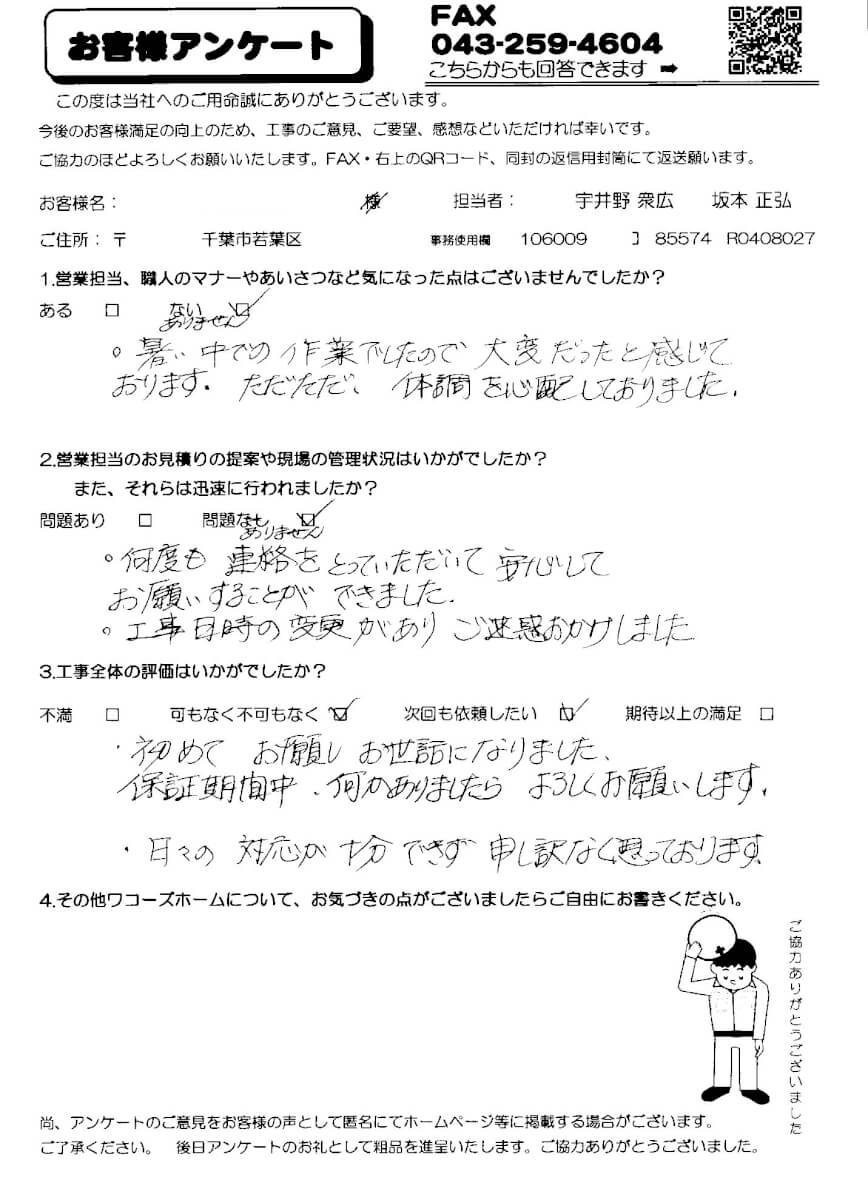 お客様アンケート
FAX
043-259-4604
こちらからも回答できます ➡
この度は当社へのご用命誠にありがとうございます。
今後のお客様満足の向上のため、工事のご意見、ご要望、感想などいただければ幸いです。
ご協力のほどよろしくお願いいたします。FAX・右上のQRコード、同封の返信用封筒にて返送願います。
お客様名： 様 担当者： 宇井野 衆広 坂本 正弘
ご住所：〒 千葉市若葉区 事務使用欄 106009 】 85574 R0408027
1.営業担当、職人のマナーやあいさつなど気になった点はございませんでしたか？
ある □ ない ☑
ありません
○ 暑い中での作業でしたので大変だったと感じて
おります。ただただ、体調を心配しておりました。
2.営業担当のお見積りの提案や現場の管理状況はいかがでしたか？
また、それらは迅速に行われましたか？
問題あり □ 問題なし ☑
ありません
○ 何度も連絡をとっていただいて安心して
お願いすることができました。
○ 工事日時の変更がありご迷惑おかけしました
3.工事全体の評価はいかがでしたか？
不満 □ 可もなく不可もなく ☑ 次回も依頼したい ☑ 期待以上の満足 □
・初めてお願いしお世話になりました、
保証期間中、何かありましたらよろしくお願いします。
・日々の対応が十分できず申し訳なく思っております。
4.その他ワコーズホームについて、お気づきの点がございましたらご自由にお書きください。
ご協力ありがとうございました
尚、アンケートのご意見をお客様の声として匿名にてホームページ等に掲載する場合がございます。
ご了承ください。 後日アンケートのお礼として粗品を進呈いたします。ご協力ありがとうございました。